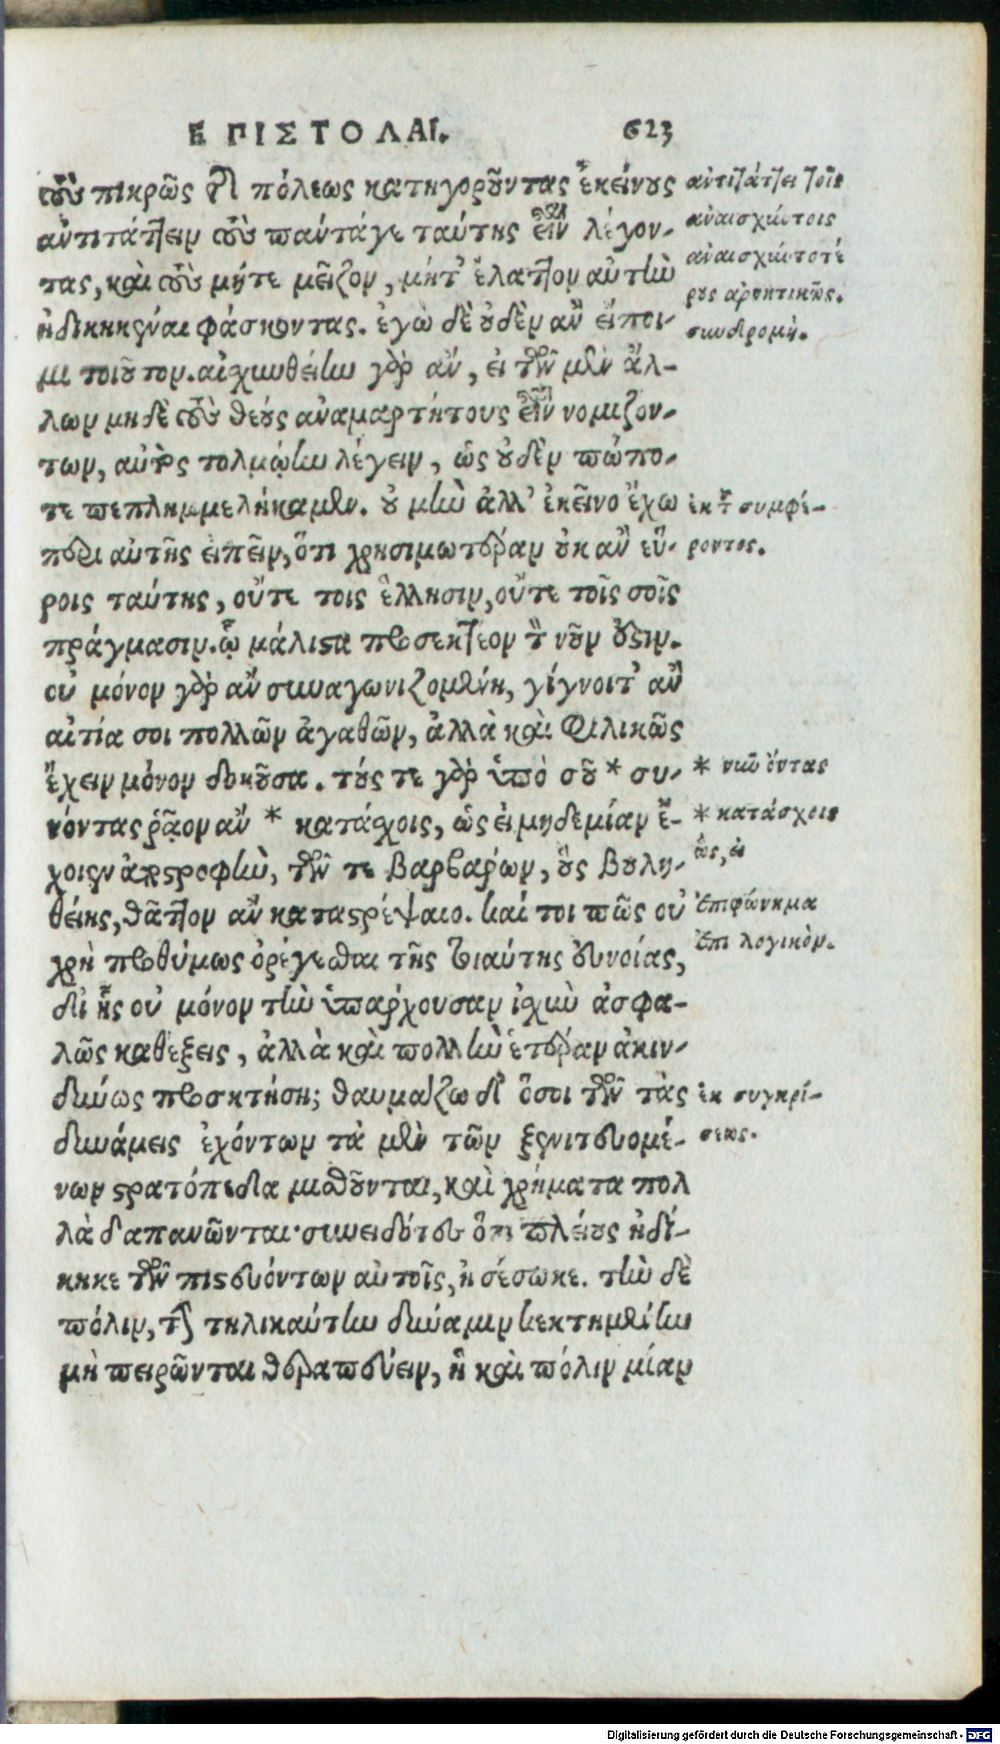 ΕΠΙΣΤΟΛΑΙ. 623
τοὺς πικρῶς τῆς πόλεως κατηγοροῦντας ἐκείνους
ἀντιτάττειν τοὺς πάντάγε ταύτης εἶναι λέγον-
τας, καὶ τοὺς μήτε μεῖζον, μήτ' ἔλαττον αὐτὴν
ἠδικηκέναι φάσκοντας. ἐγὼ δὲ οὐδὲν ἂν εἴποι-
μι τοιοῦτον. αἰσχυνθείην γὰρ ἄν, εἰ τῶν μὲν ἄλ-
λων μηδὲ τοὺς θεούς ἀναμαρτήτους εἶναι νομιζον-
των, αὐτὸς τολμῴην λέγειν, ὡς οὐδὲν πώπο-
τε πεπλημμελήκαμεν. οὐ μὴν ἀλλ' ἐκεῖνο ἔχω
περὶ αὐτῆς εἰπεῖν, ὅτι χρησιμωτέραν οὐκ ἂν εὕ-
ροις ταύτης, οὔτε τοις ἕλλησιν, οὔτε τοῖς σοῖς
πράγμασιν. ᾧ μάλιστα προσεκτέον τὸν νοῦν ἐστιν.
οὐ μόνον γὰρ ἂν συναγωνιζομένη, γίγνοιτ' ἂν
αἰτία σοι πολλῶν ἀγαθῶν, ἀλλὰ καὶ φιλικῶς
ἔχειν μόνον δοκοῦσα. τούς τε γὰρ ὑπὸ σοῦ * συ-
νόντας ῥᾷον ἂν * κατάχοις, ὡς εἰ μηδεμίαν ἔ-
χοιεν ἀποστροφὴν, τῶν τε βαρβάρων, οὓς βουλη-
θείης, θᾶττον ἂν καταστρέψαιο. καί τοι πῶς οὐ
χρὴ προθύμως ὀρέγεσθαι τῆς τοιαύτης εὐνοίας,
δι' ἧς οὐ μόνον τὴν ὑπάρχουσαν ἰσχὺν ἀσφα-
λῶς καθέξεις, ἀλλὰ καὶ πολλὴν ἑτέραν ἀκιν-
δύνως προσκτήση; θαυμάζω δ' ὅσοι τῶν τὰς
δυνάμεις ἐχόντων τὰ μὲν τῶν ξενιτευομέ-
νων στρατόπεδα μισθοῦνται, καὶ χρήματα πολ
λὰ δαπανῶνται· συνειδότες ὅτι πλείους ἠδί-
κηκε τῶν πιστευόντων αὐτοῖς, ἢ σέσωκε. τὴν δὲ
πόλιν, τὴν τηλικαύτην δύναμιν κεκτημένην
μὴ πειρῶνται θεραπεύειν, ἣ καὶ πόλιν μίαν
ἀντιτάττει τοῖς
ἀναισχύντοις
ἀναισχυντοτέ
ρους ἀρνητικῶς.
συνδρομή.
ἐκ τοῦ συμφέ-
ροντος.
* νῦν ὄντας
* κατάσχοις
ὡς, εἰ
Ἐπιφώνημα
Ἐπιλογικὸν.
ἐκ συγκρί-
σεως.
Digitalisierung gefördert durch die Deutsche Forschungsgemeinschaft - DFG